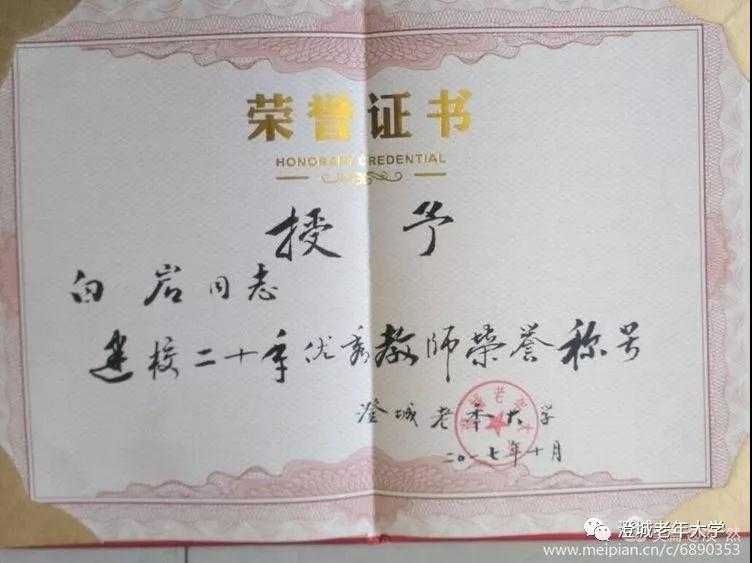 荣誉证书
HONORARY CREDENTIAL
授予
白岩同志
建校二十年优秀教师荣誉称号
澄城老年大学
二〇一七年十月
澄城老年大学
www.meipian.cn/c/6890353